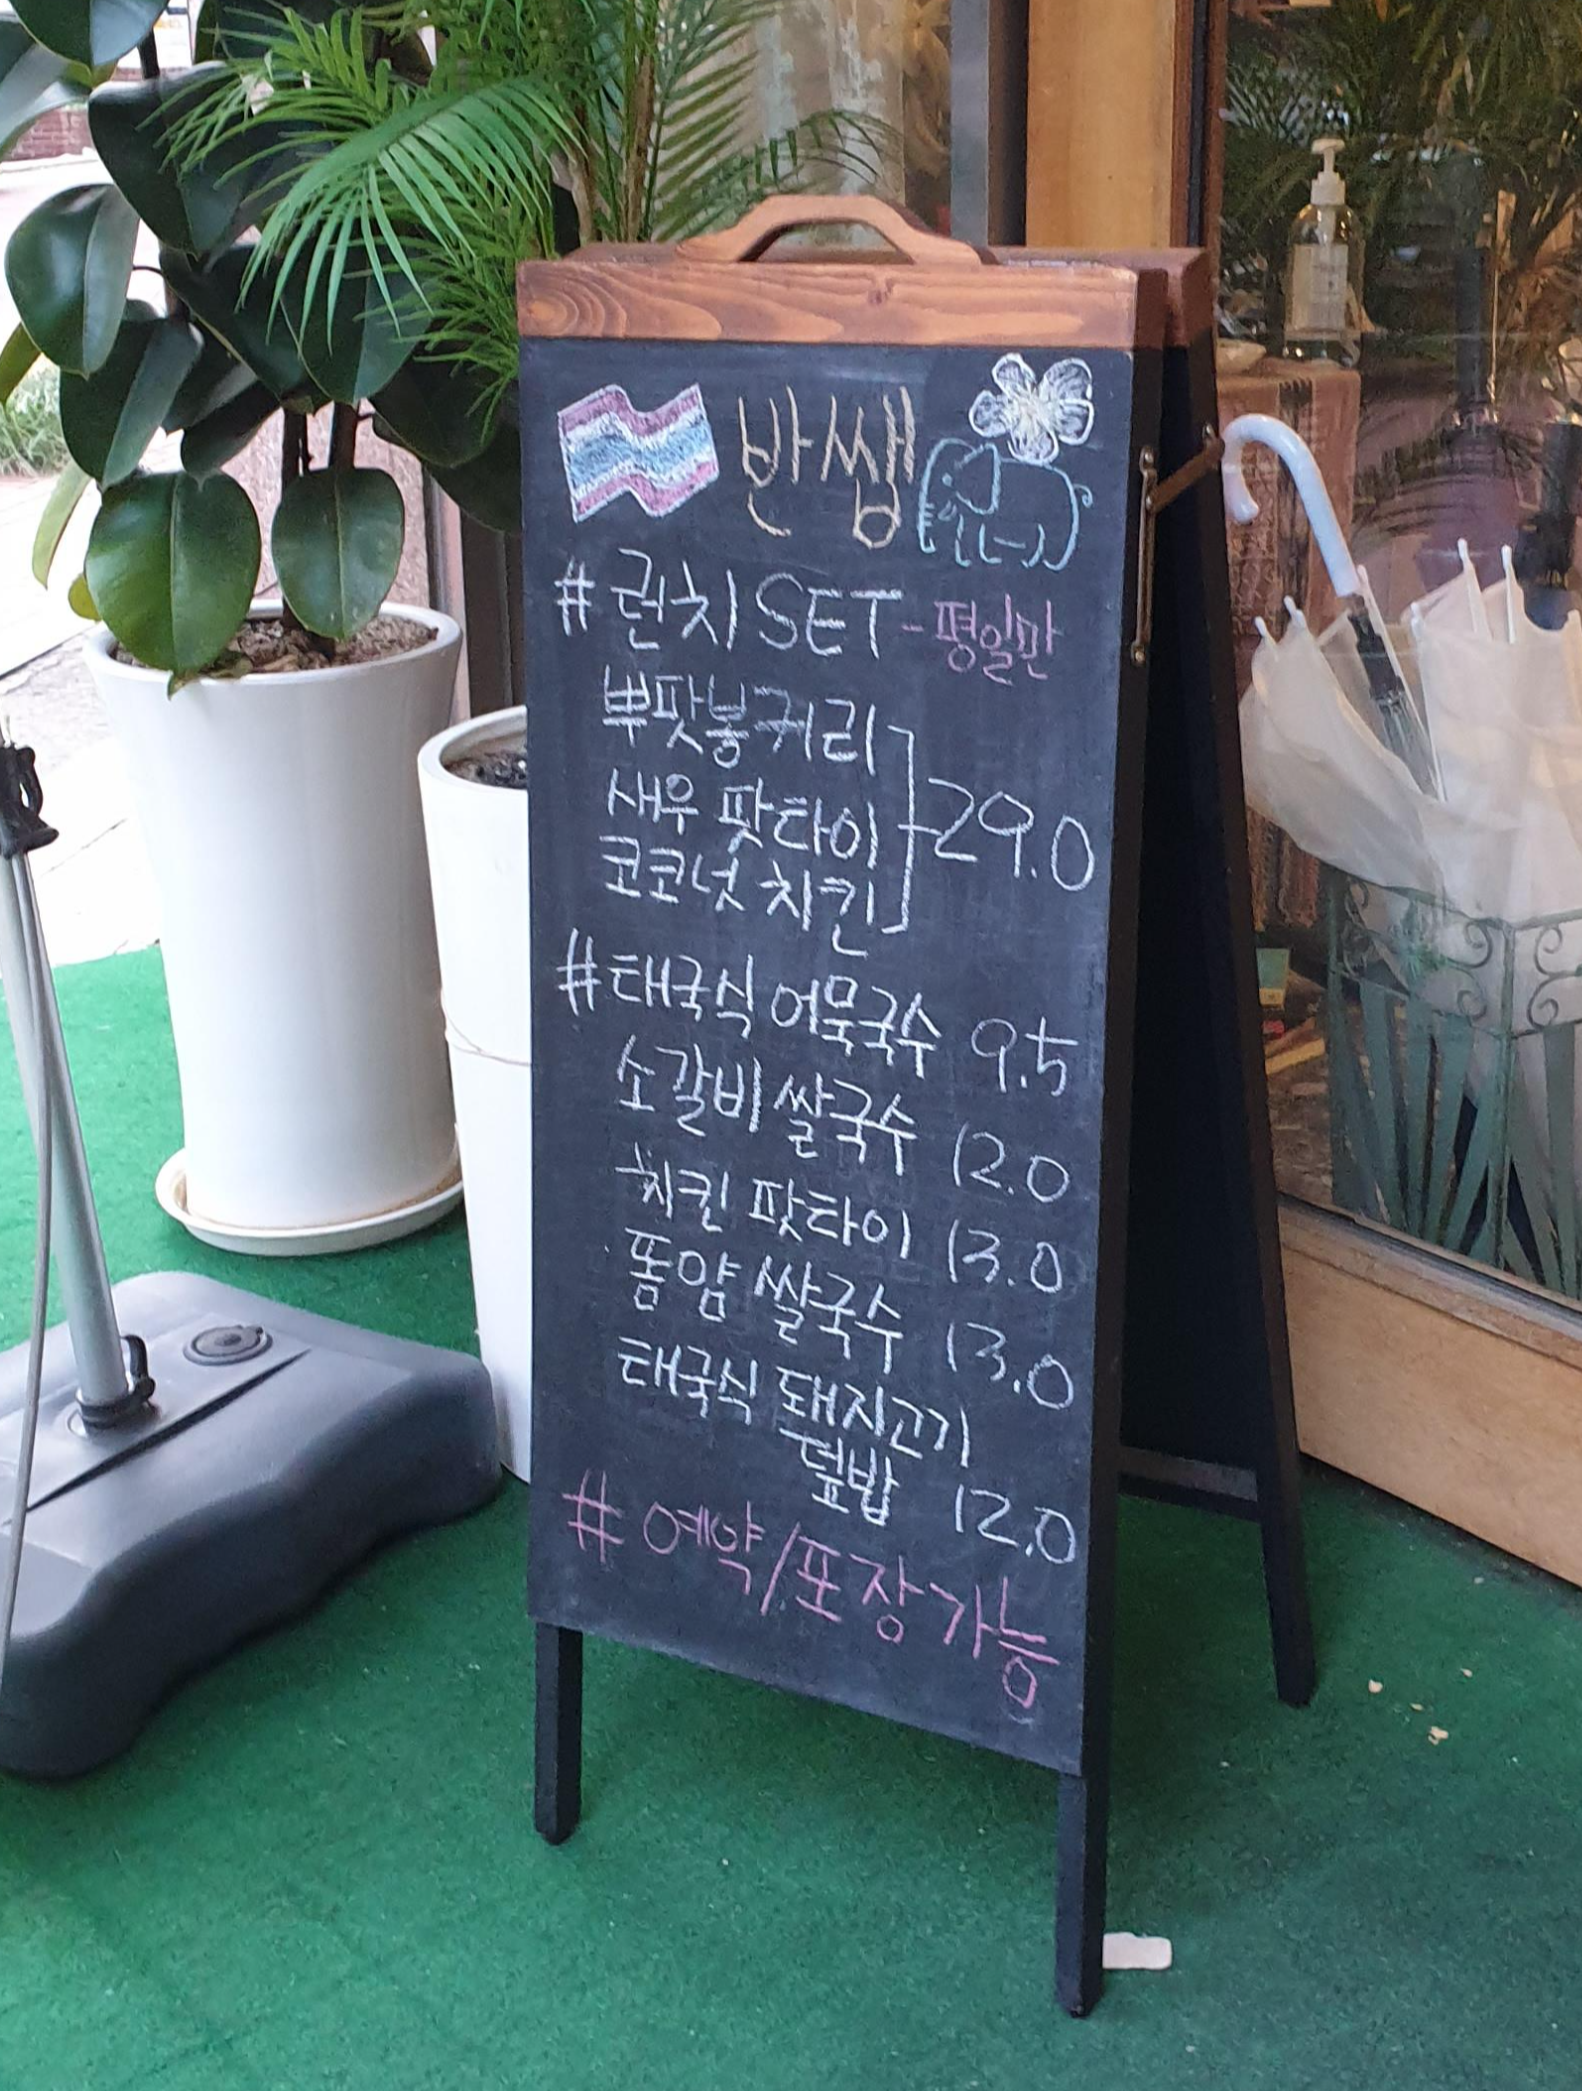 반쌩
#런치 SET -평일만
뿌팟봉커리
새우 팟타이
코코넛 치킨
29.0
#태국식 어묵국수 9.5
소갈비 쌀국수 12.0
치킨 팟타이 13.0
똠얌 쌀국수 13.0
태국식 돼지고기
덮밥 12.0
# 예약/포장가능